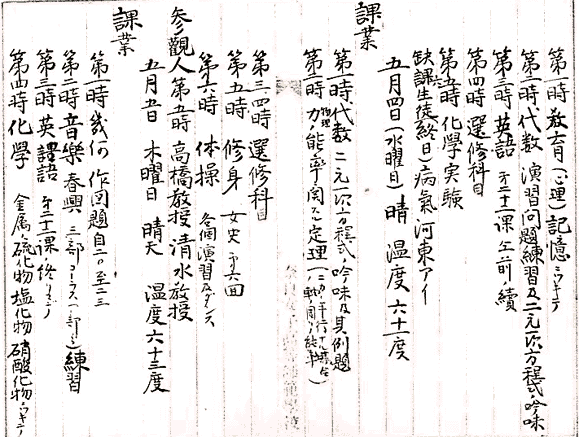 第一時 教育（心理）記憶ニツキテ
第二時 代数 演習問題練習及二元一次方程式ノ吟味
第三時 英語 第二十二課 上前ノ續
第四時 選修科目
第五時 化学実験
缺課生徒（終日）病氣 河東アイ
五月四日（水曜日）晴 温度六十二度
課業
第一時 代数 二元一次方程式ノ吟味及其例題
第二時 物理 力ノ能率ニ関スル定理
第三四時 選修科目
第五時 修身 女史 第六回
第六時 体操 各個演習及ダンス
参觀人 第五時 高橋教授 清水教授
五月五日 木曜日 晴天 温度六十三度
課業
第一時 幾何 作図題 自二〇至二三
第二時 音樂 春興 三部コーラス（一部ヅヽ）練習
第三時 英語 第二十二課 終リマデ
第四時 化学 金属ノ硫化物 塩化物 硝酸化物ニツキテ